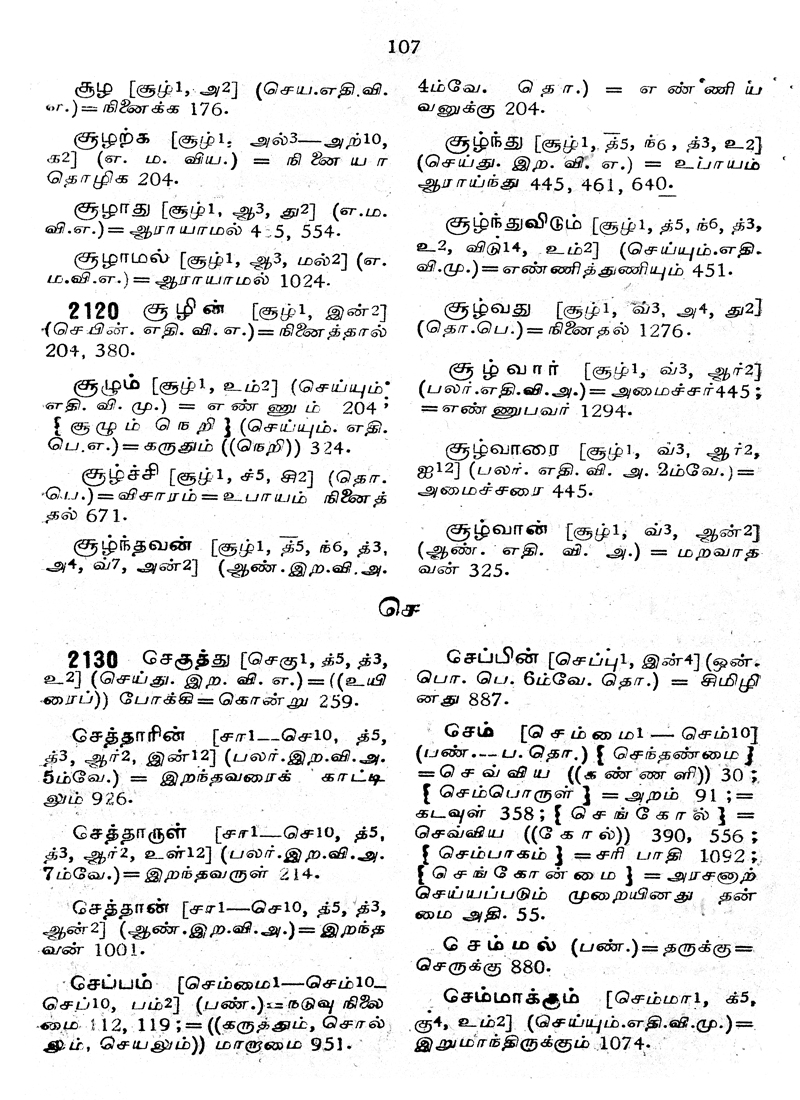 107
சூழ [சூழ்1, அ2] (செய.எதி.வி.
எ.)=நினைக்க 176.
சூழற்க [சூழ்1, அல்3—அற்10,
க2] (எ. ம. விய.) = நினையா
தொழிக 204.
சூழாது [சூழ்1, ஆ3, து2] (எ.ம.
வி.எ.)=ஆராயாமல் 554.
சூழாமல் [சூழ்1, ஆ3, மல்2] (எ.
ம.வி.எ.)=ஆராயாமல் 1024.
2120 சூழின் [சூழ்1, இன்2]
(செயின். எதி. வி. எ.)=நினைத்தால்
204, 380.
சூழும் [சூழ்1, உம்2] (செய்யும்.
எதி. வி. மு.) = எண்ணும் 204;
{சூழும் நெறி} (செய்யும். எதி.
பெ.எ.)=கருதும் ((நெறி)) 324.
சூழ்ச்சி [சூழ்1, ச்5, சி2] (தொ.
பெ.)=விசாரம்=உபாயம் நினைத்
தல் 671.
சூழ்ந்தவன் [சூழ்1, த்5, ந்6, த்3,
அ4, வ்7, அன்2] (ஆண்.இற.வி.அ.
4ம்வே. தொ.) = எண்ணிய
வனுக்கு 204.
சூழ்ந்து [சூழ்1, த்5, ந்6, த்3, உ2]
(செய்து. இற. வி. எ.) = உபாயம்
ஆராய்ந்து 445, 461, 640.
சூழ்ந்துவிடும் [சூழ்1, த்5, ந்6, த்3,
உ2, விடு14, உம்2] (செய்யும்.எதி.
வி.மு.)=எண்ணித்துணியும் 451.
சூழ்வது [சூழ்1, வ்3, அ4, து2]
(தொ.பெ.)=நினைதல் 1276.
சூழ்வார் [சூழ்1, வ்3, ஆர்2]
(பலர்.எதி.வி.அ.)=அமைச்சர்445;
=எண்ணுபவர் 1294.
சூழ்வாரை [சூழ்1, வ்3, ஆர்2,
ஐ12] (பலர். எதி. வி. அ. 2ம்வே.)=
அமைச்சரை 445.
சூழ்வான் [சூழ்1, வ்3, ஆன்2]
(ஆண். எதி. வி. அ.) = மறவாத
வன் 325.
செ
2130 செகுத்து [செகு1, த்5, த்3,
உ2] (செய்து. இற. வி. எ.)=((உயி
ரைப்)) போக்கி=கொன்று 259.
செத்தாரின் [சா1—செ10, த்5,
த்3, ஆர்2, இன்12] (பலர்.இற.வி.அ.
5ம்வே.) = இறந்தவரைக் காட்டி
லும் 926.
செத்தாருள் [சா1—செ10, த்5,
த்3, ஆர்2, உள்12] (பலர்.இற.வி.அ.
7ம்வே.)=இறந்தவருள் 214.
செத்தான் [சா1—செ10, த்5, த்3,
ஆன்2] (ஆண்.இற.வி.அ.)=இறந்த
வன் 1001.
செப்பம் [செம்மை1—செம்10—
செப்10, பம்2] (பண்.)=நடுவு நிலை
மை 112, 119;=((கருத்தும், சொல்
லும், செயலும்)) மாறாமை 951.
செப்பின் [செப்பு1, இன்4] (ஒன்.
பொ. பெ. 6ம்வே. தொ.) = சிமிழி
னது 887.
செம் [செம்மை1—செம்10]
(பண்.—ப.தொ.) {செந்தண்மை}
=செவ்விய ((கண்ணளி)) 30;
{செம்பொருள்} = அறம் 91;=
கடவுள் 358; {செங்கோல்} =
செவ்விய ((கோல்)) 390, 556;
{செம்பாகம்} = சரி பாதி 1092;
{செங்கோன்மை} = அரசனாற்
செய்யப்படும் முறையினது தன்
மை அதி. 55.
செம்மல் (பண்.)=தருக்கு=
செருக்கு 880.
செம்மாக்கும் [செம்மா1, க்5,
கு4, உம்2] (செய்யும்.எதி.வி.மு.)=
இறுமாந்திருக்கும் 1074.